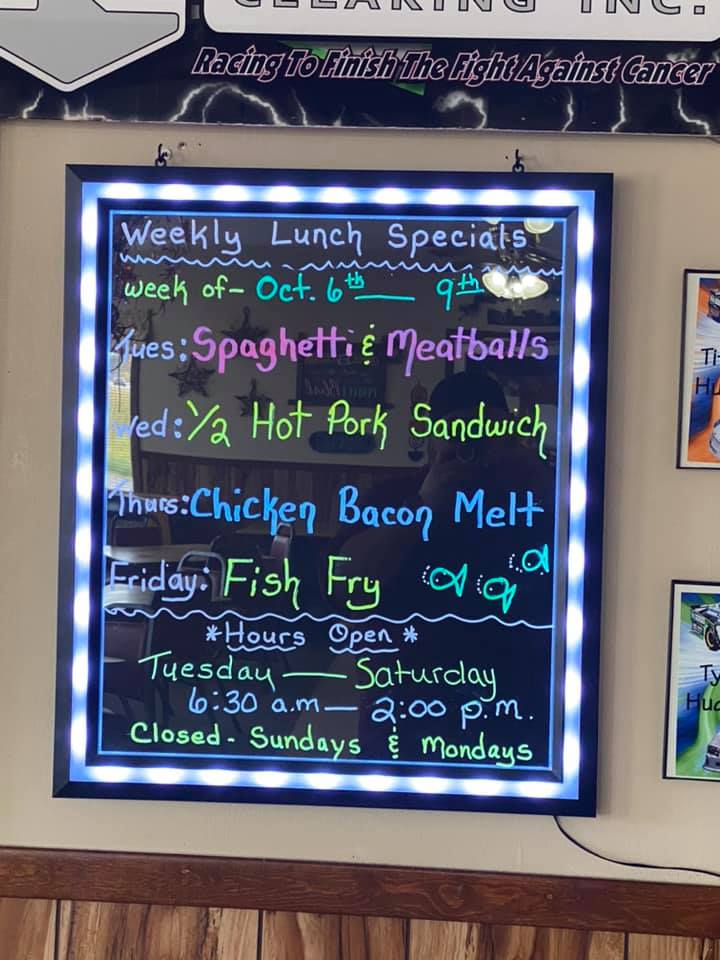 CLEARING INC.
Racing To Finish The Fight Against Cancer
Weekly Lunch Specials
week of- Oct. 6th — 9th
Tues: Spaghetti & Meatballs
Wed: 1/2 Hot Pork Sandwich
Thurs: Chicken Bacon Melt
Friday: Fish Fry
*Hours Open*
Tuesday — Saturday
6:30 a.m — 2:00 p.m.
Closed - Sundays & Mondays